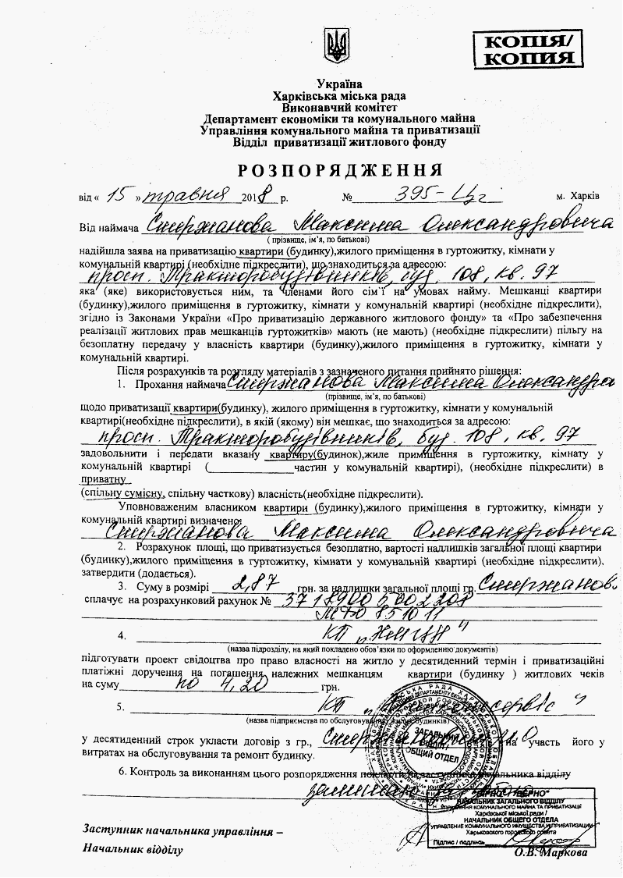 КОПІЯ/
КОПИЯ
Україна
Харківська міська рада
Виконавчий комітет
Департамент економіки та комунального майна
Управління комунального майна та приватизації
Відділ приватизації житлового фонду
РОЗПОРЯДЖЕННЯ
від « 15 » травня 2018 р. № 395- м. Харків
Від наймача Стржанова Максима Олександровича
( прізвище, ім’я, по батькові)
надійшла заява на приватизацію квартири (будинку),жилого приміщення в гуртожитку, кімнати у
комунальній квартирі (необхідне підкреслити), що знаходиться за адресою:
просп. Тракторобудівників, буд. 108, кв. 97
яка (яке) використовується ним, та членами його сім’ї на умовах найму. Мешканці квартири
(будинку),жилого приміщення в гуртожитку, кімнати у комунальній квартирі (необхідне підкреслити),
згідно із Законами України «Про приватизацію державного житлового фонду» та «Про забезпечення
реалізації житлових прав мешканців гуртожитків» мають (не мають) (необхідне підкреслити) пільгу на
безоплатну передачу у власність квартири (будинку),жилого приміщення в гуртожитку, кімнати у
комунальній квартирі.
Після розрахунків та розгляду матеріалів з зазначеного питання прийнято рішення:
1. Прохання наймача Стржанова Максима Олександра
(прізвище, ім’я, по батькові)
щодо приватизації квартири(будинку), жилого приміщення в гуртожитку, кімнати у комунальній
квартирі(необхідне підкреслити), в якій (якому) він мешкає, що знаходиться за адресою:
просп. Тракторобудівників, буд. 108, кв. 97
задовольнити і передати вказану квартиру(будинок),жиле приміщення в гуртожитку, кімнату у
комунальній квартирі (частин у комунальній квартирі), (необхідне підкреслити) в
приватну
(спільну сумісну, спільну часткову) власність(необхідне підкреслити).
Уповноваженим власником квартири (будинку),жилого приміщення в гуртожитку, кімнати у
комунальній квартирі визначено
Стржанова Максима Олександровича
2. Розрахунок площі, що приватизується безоплатно, вартості надлишків загальної площі квартири
(будинку),жилого приміщення в гуртожитку, кімнати у комунальній квартирі (необхідне підкреслити),
затвердити (додається).
3. Суму в розмірі 2,87 грн. за надлишки загальної площі гр. Стржанов
сплачує на розрахунковий рахунок №
МФО 851011
4. КП
(назва підрозділу, на який покладено обов’язки по оформленню документів)
підготувати проект свідоцтва про право власності на житло у десятиденний термін і приватизаційні
платіжні доручення на погашення належних мешканцям квартири (будинку ) житлових чеків
на суму по 4,20 грн.
5. КП
(назва підприємства по обслуговуванню будинків)
у десятиденний строк укласти договір з гр., на участь його у
витратах на обслуговування та ремонт будинку.
6. Контроль за виконанням цього розпорядження начальника відділу
ЗАГАЛЬНИЙ
ОБЩИЙ ОТДЕЛ
НАЧАЛЬНИК ЗАГАЛЬНОГО ВІДДІЛУ
Харківської міської ради /
НАЧАЛЬНИК ОБЩЕГО ОТДЕЛА
УПРАВЛЕНИЕ КОММУНАЛЬНОГО ИМУЩЕСТВА И ПРИВАТИЗАЦИИ
Харьковского городского совета
Підпис / подпись
Заступник начальника управління –
Начальник відділу О.В. Маркова